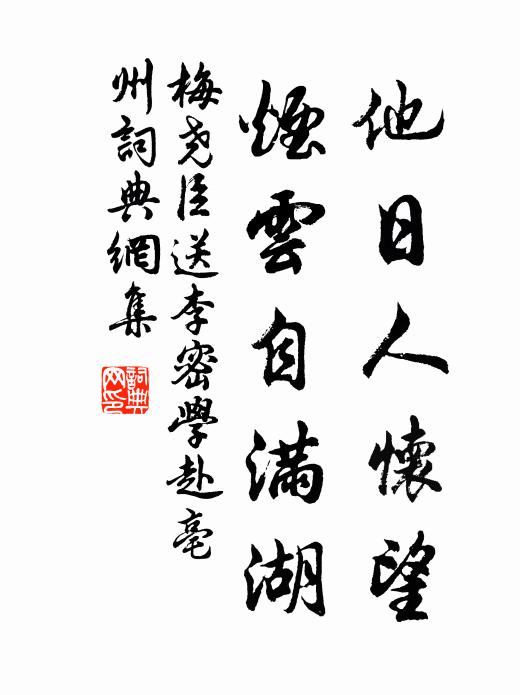 他日人懷望
煙雲自滿湖
梅尧臣送李密學赴亳
州詞典網集
詞典网印